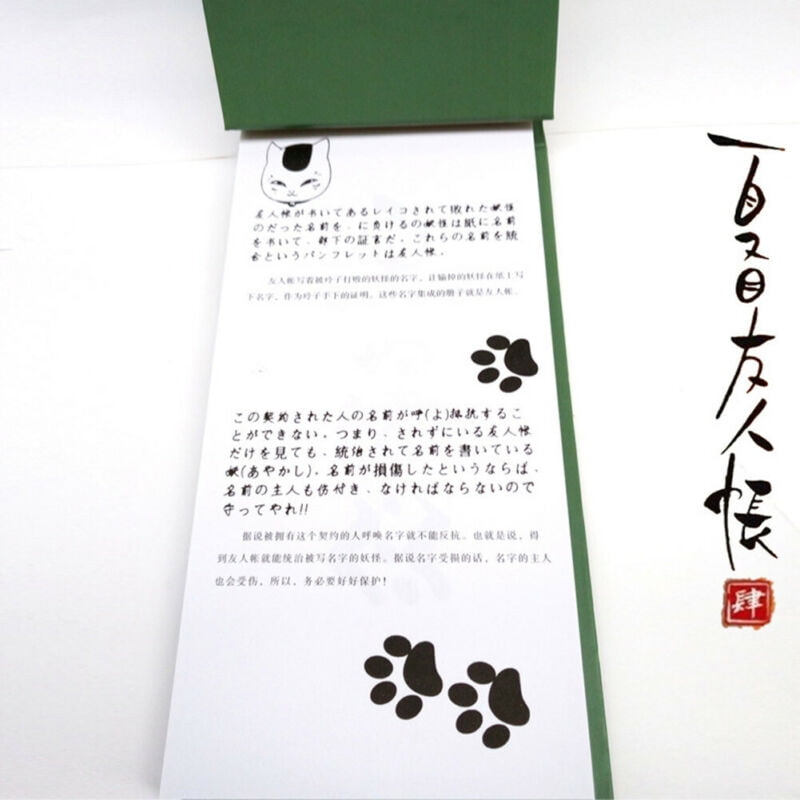 友人帐が书いてあるレイコされて败れた妖怪
のだった名前を、に負けるの妖怪は紙に名前
を书いて、部下の証言だ。これらの名前を統
合というパンフレットは友人帐。
友人帐写着被玲子打败的妖怪的名字，让输掉的妖怪在纸上写
下名字，作为玲子手下的证明。这些名字集成的册子就是友人帐。
この契約された人の名前が呼(よ)抵抗するこ
とができない。つまり、されずにいる友人帐
だけを見ても、統治されて名前を書いている
妖(あやかし)。名前が損傷したというならば、
名前の主人も伤付き、なければならないので
守ってやれ!!
据说被拥有这个契约的人呼唤名字就不能反抗。也就是说，得
到友人帐就能统治被写名字的妖怪。据说名字受损的话，名字的主人
也会受伤，所以，务必要好好保护！
夏目友人帳
肆